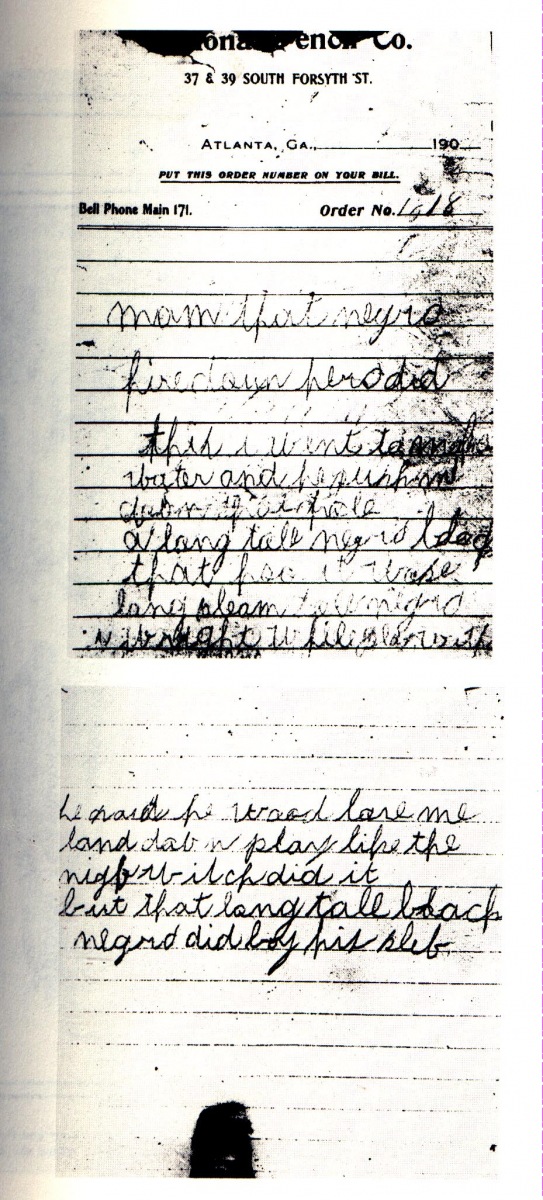 Co.
37 & 39 SOUTH FORSYTH ST.
ATLANTA, GA., 190
PUT THIS ORDER NUMBER ON YOUR BILL.
Bell Phone Main 171. Order No. 1918
mam that negro
hire doun here did
this i went to make
water and he push me
doun that hole
a long tall negro black
that hoo it wase
long sleam tall negro
i wright while play with
he said he wood love me
land dab n play like the
night witch did it
but that long tall black
negro did boy his slef